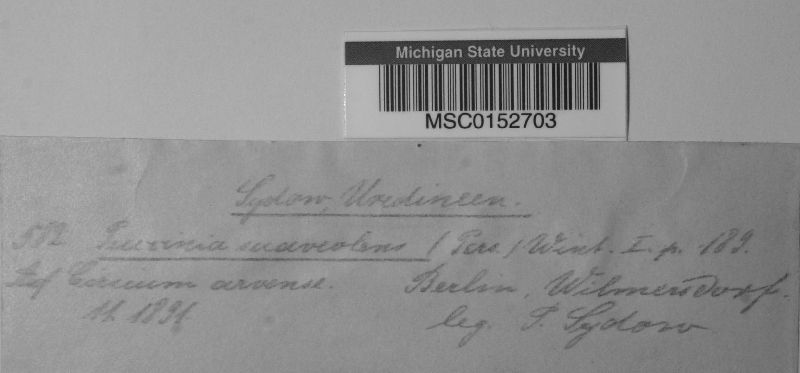 Michigan State University
MSC0152703
Sydow, Uredineen.
582 Puccinia suaveolens (Pers.) Wint. I. p. 189.
Auf Cirsium arvense. Berlin, Wilmersdorf.
1891 leg. P. Sydow